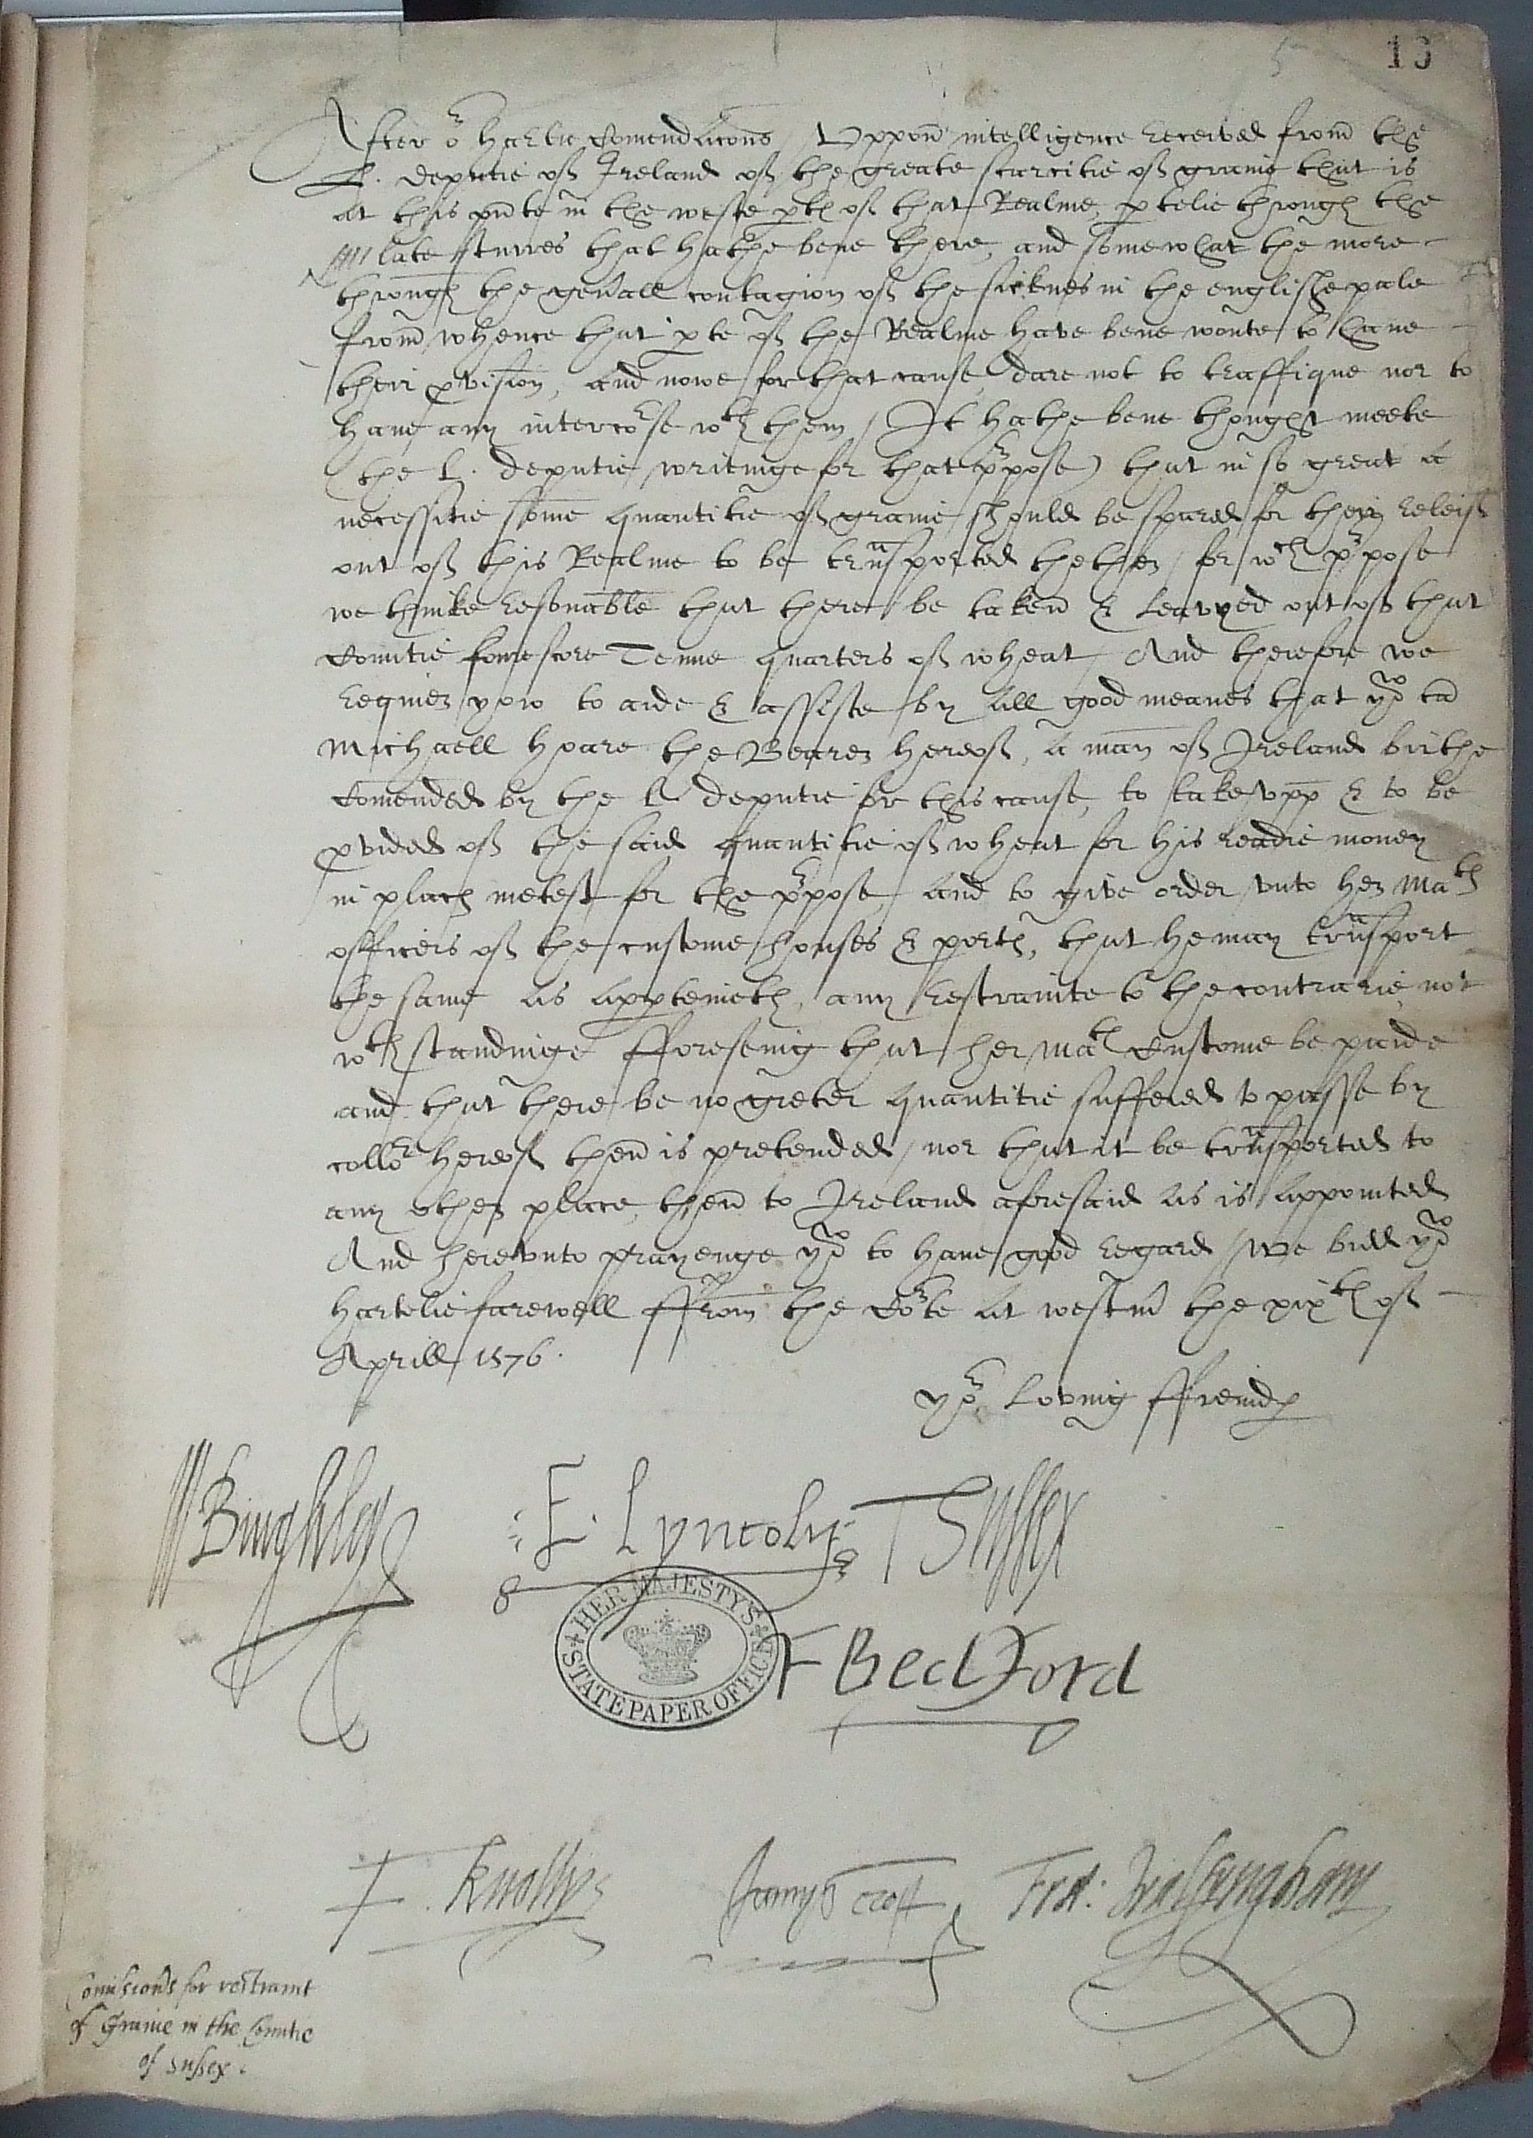 13
After or hartie Comendacons / Uppon intelligence received from the
L. deputie of Ireland of the greate scarcitie of graine that is
at this pnte in the weste pts of that Realme, ptelie through the
late sturres that hathe bene there, and somewhat the more
through the genall contagion of the sicknes in the englishe pale
from whence that pte of the Realme have bene wonte to have
their pvision, and nowe for that cause dare not to traffique nor to
have any intercorse wth them / It hathe bene thought meete
(the L. deputie writinge for that purpose) that in so great a
necessitie some quantitie of graine should be spared for their releif
out of this Realme to be transported thether / for wch purpose
we thinke resonable that there be taken & leavyed out of that
Countie fourescore Tenne quarters of wheat / And therefore we
require yow to aide & assiste by all good meanes that yow can
Michaell Hoare the Bearer hereof, a man of Ireland birthe
Comended by the L. deputie for this cause, to take vpp & to be
pvided of the said quantitie of wheat for his readie money
in places metest for the purpose, and to give order vnto her Mats
officers of the custome houses & ports, that he may transport
the same as appteineth, any restrainte to the contrarie not
wth standinge fforeseing that her mats Custome be paide
and that there be no greter quantitie suffered to passe by
collor hereof then is pretended / nor that it be transported to
any other place, then to Ireland aforesaid as is appointed
And herevnto prayenge yow to have good regard / We bidd yow
hartelie farewell ffrom the Corte at westm the xixth of
Aprill 1576.
yor Loving ffreinds
W Burghley E. Lyncoln T Sussex
HER MAJESTY'S STATE PAPER OFFICE
F Bedford
F. Knollys James Croft Fra: Walsyngham
Comissions for restraint
of Graine in the Countie
of Sussex.